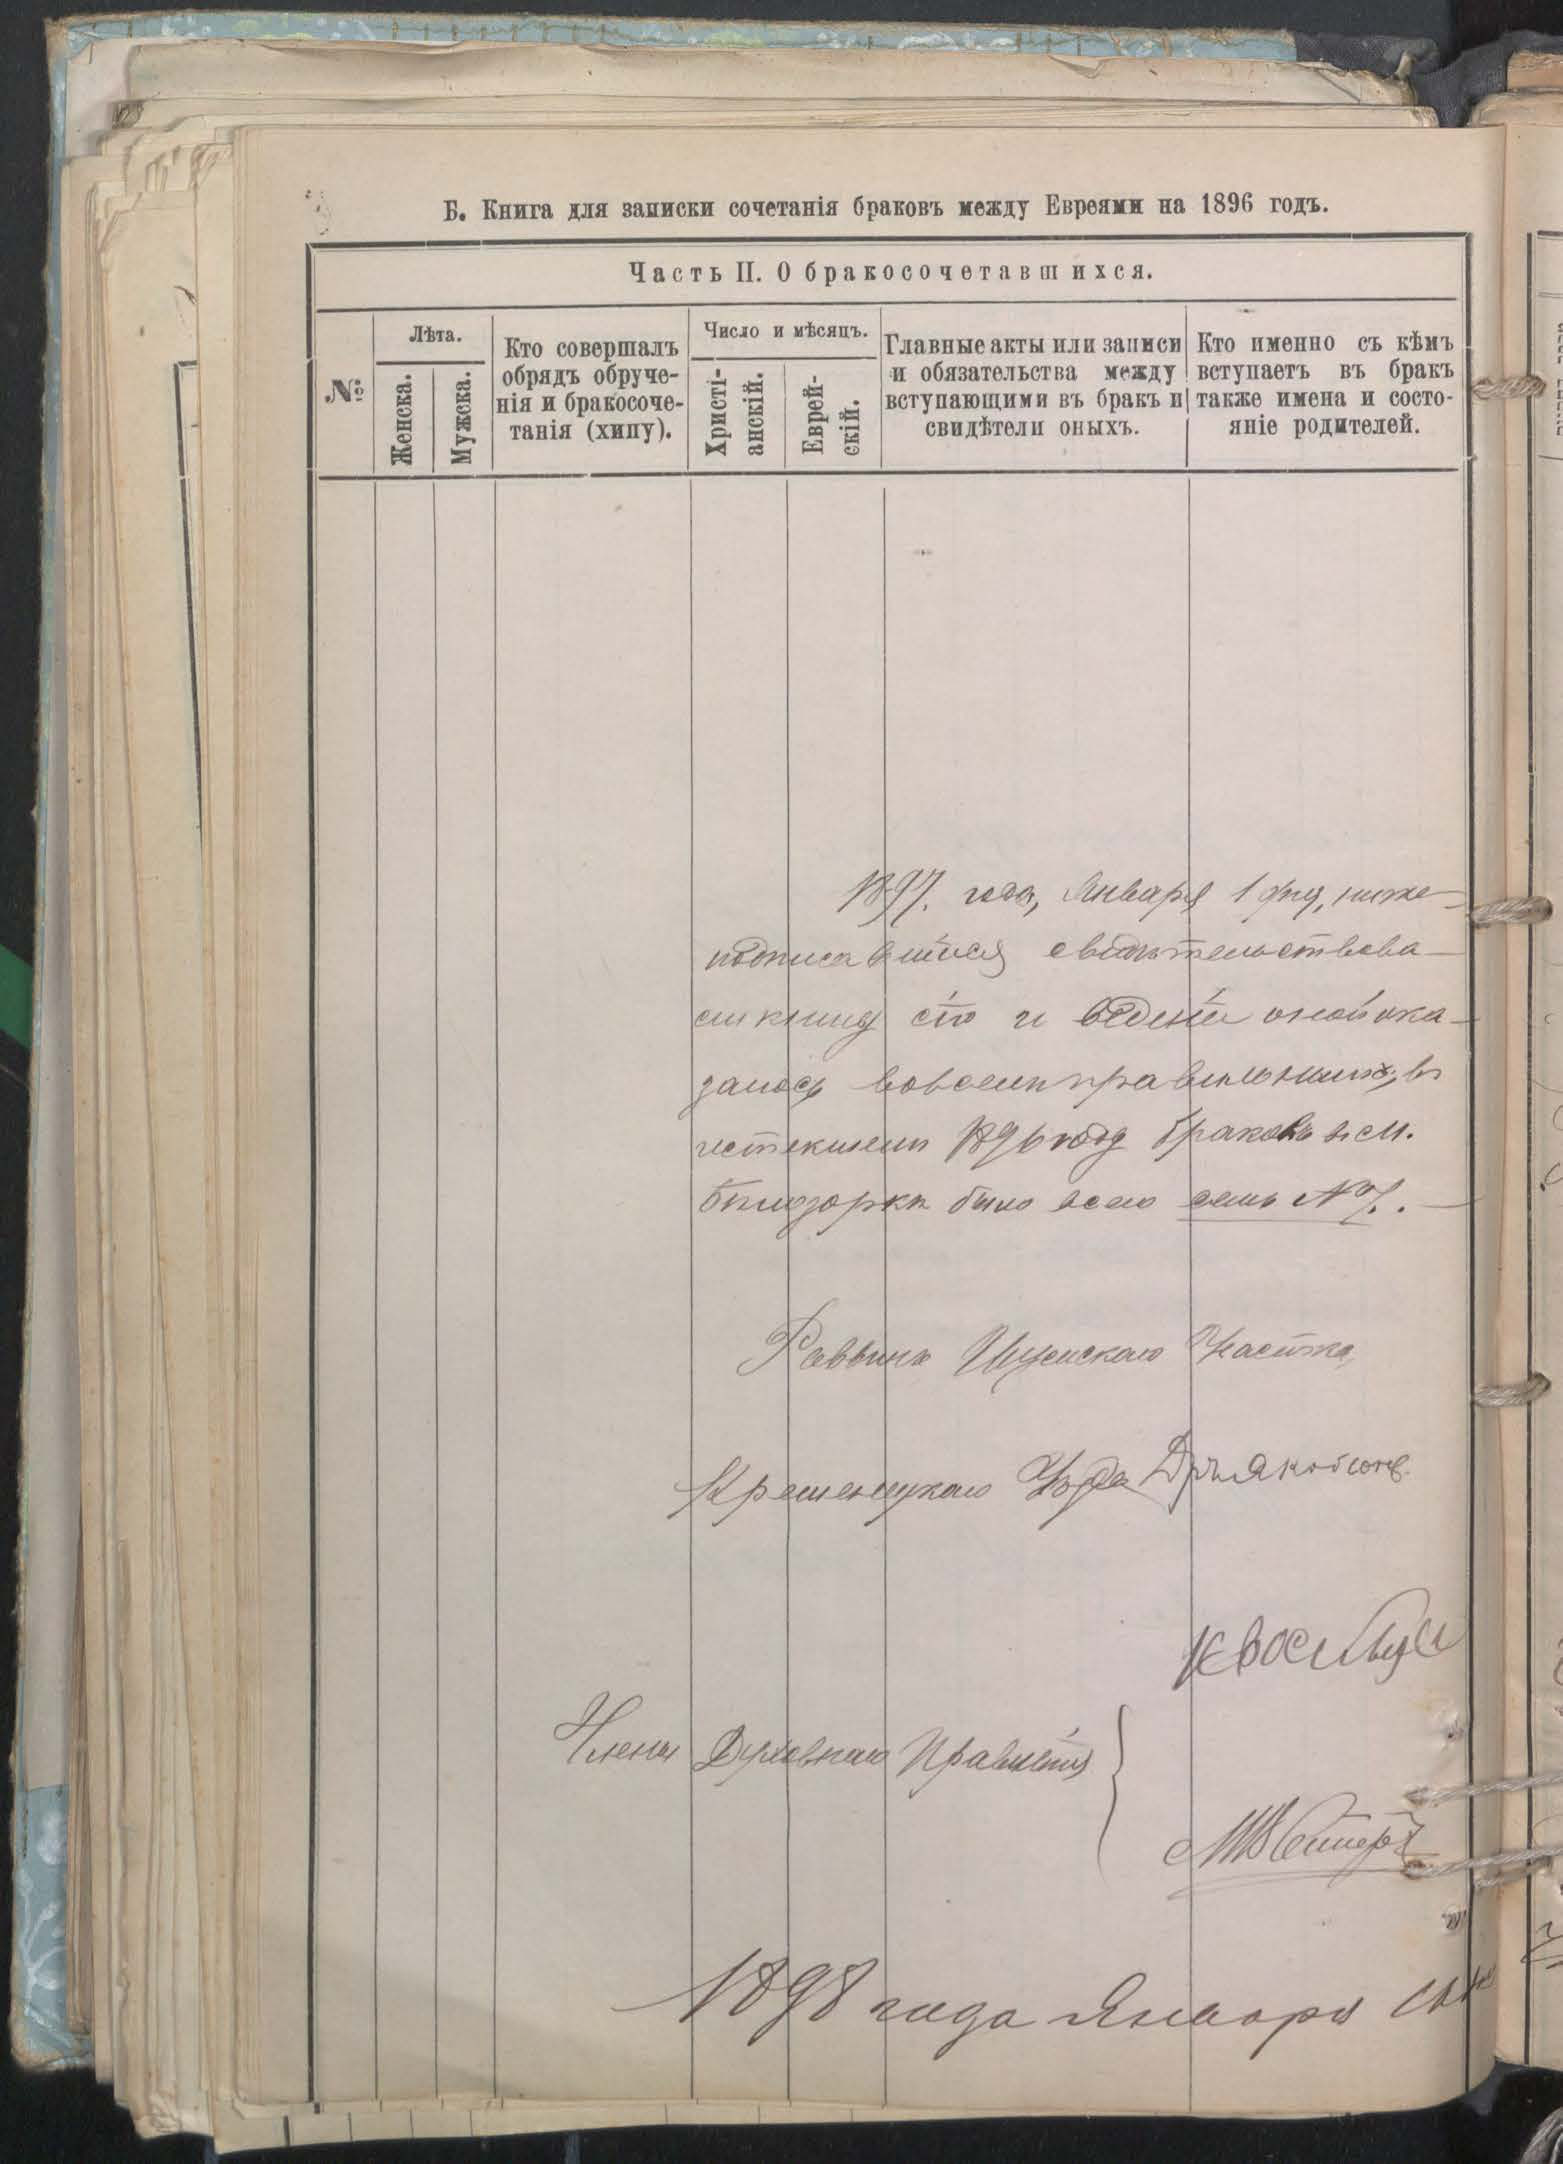 Б. Книга для записки сочетанія браковъ между Евреями на 1896 годъ.
Часть II. О бракосочетавшихся.
№
Лѣта.
Женска.
Мужска.
Кто совершалъ
обрядъ обруче-
нія и бракосоче-
танія (хипу).
Число и мѣсяцъ.
Христі-
анскій.
Еврей-
скій.
Главные акты или записи
и обязательства между
вступающими въ бракъ и
свидѣтели оныхъ.
Кто именно съ кѣмъ
вступаетъ въ бракъ
также имена и состо-
яніе родителей.
1897. года, Января 1 дня, ниже-
подписавшіися свидѣтельствова-
ли книгу сію и веденіе оной ока-
залось вовсемъ правильнымъ, въ
истекшемъ 1896 году браковъ въ м.
Бѣлозоркѣ было всего семь № 7. -
Раввинъ Шумскаго Участка,
Кременецкаго Уѣзда Дръ Якобсонъ.
Члены Духовнаго Правленія
1898 года Января